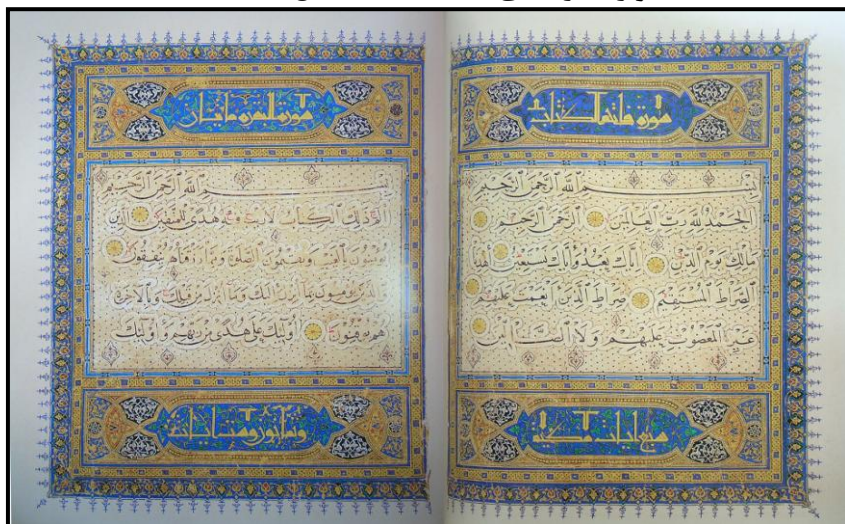 سورة فاتحة الكتاب
بِسْمِ ٱللَّهِ ٱلرَّحْمَٰنِ ٱلرَّحِيمِ
الْحَمْدُ لِلَّهِ رَبِّ الْعَالَمِينَ الرَّحْمَٰنِ الرَّحِيمِ
مَالِكِ يَوْمِ الدِّينِ إِيَّاكَ نَعْبُدُ وَإِيَّاكَ نَسْتَعِينُ اهْدِنَا
الصِّرَاطَ الْمُسْتَقِيمَ صِرَاطَ الَّذِينَ أَنْعَمْتَ عَلَيْهِمْ
غَيْرِ الْمَغْضُوبِ عَلَيْهِمْ وَلَا الضَّالِّينَ
سبع ايات مكية
سورة البقرة مايتان
بِسْمِ ٱللَّهِ ٱلرَّحْمَٰنِ ٱلرَّحِيمِ
الم ذَلِكَ الْكِتَابُ لَا رَيْبَ فِيهِ هُدًى لِلْمُتَّقِينَ الَّذِينَ
يُؤْمِنُونَ بِالْغَيْبِ وَيُقِيمُونَ الصَّلَوةَ وَمِمَّا رَزَقْنَاهُمْ يُنْفِقُونَ
وَالَّذِينَ يُؤْمِنُونَ بِمَا أُنْزِلَ إِلَيْكَ وَمَا أُنْزِلَ مِنْ قَبْلِكَ وَبِالْآخِرَةِ
هُمْ يُوقِنُونَ أُولَئِكَ عَلَى هُدًى مِنْ رَبِّهِمْ وَأُولَئِكَ
وثمانون وست ايات